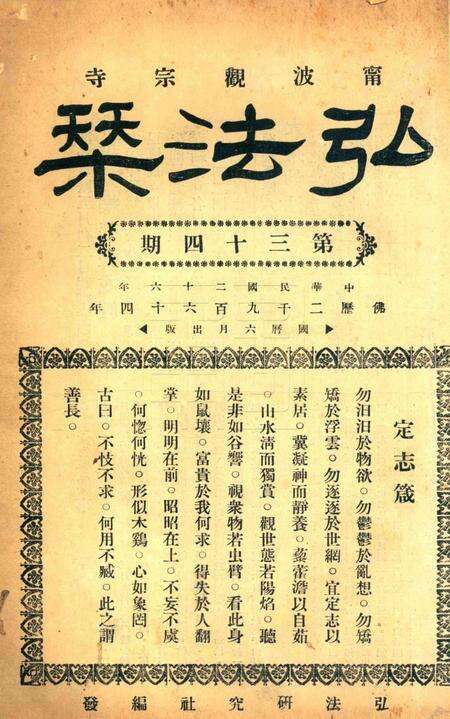 甯波觀宗寺
弘法栞
第三十四期
中華民國二十六年
佛歷二千九百六十四年
▶國曆六月出版◀
定志箴
勿汩汩於物欲。勿鬱鬱於亂想。勿矯
矯於浮雲。勿逐逐於世網。宜定志以
素居。冀凝神而靜養。藜藿澹以自茹
。山水清而獨賞。觀世態若陽焰。聽
是非如谷響。視衆物若虫臂。看此身
如鼠壤。富貴於我何求。得失於人翻
掌。明明在前。昭昭在上。不妄不虞
。何惚何恍。形似木鷄。心如象罔。
古曰。不忮不求。何用不臧。此之謂
善長。
弘法硏究社編發